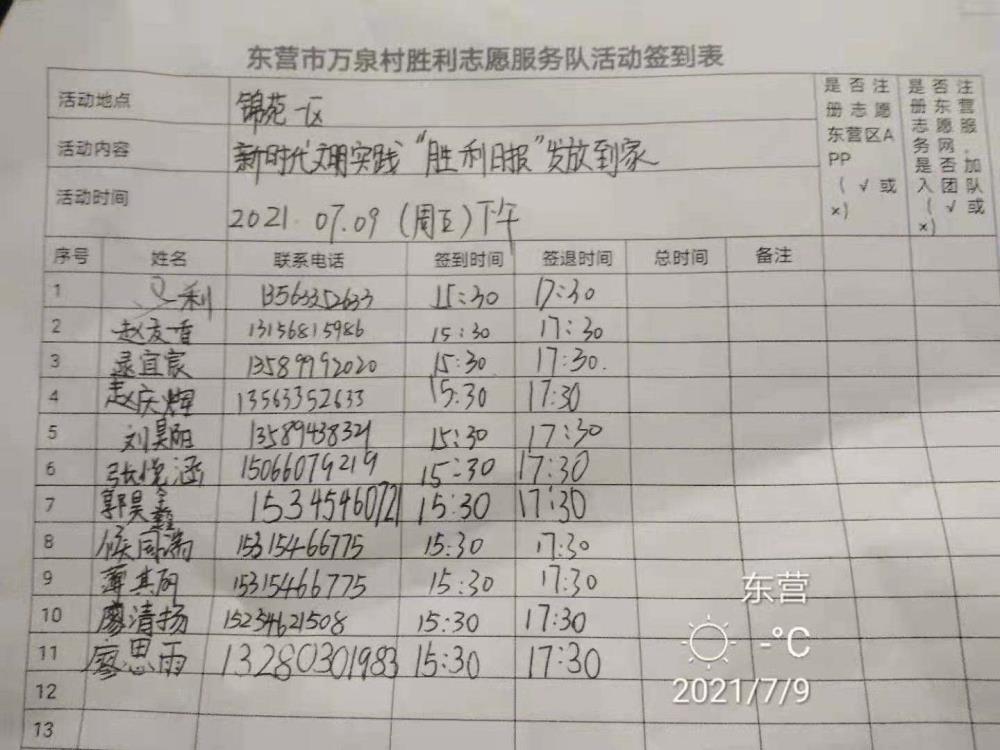 东营市万泉村胜利志愿服务队活动签到表
活动地点 锦苑一区
活动内容 新时代文明实践“胜利日报”发放到家
活动时间 2021.07.09（周五）下午
是否注
册志愿
东营区A
PP
（√或
×）
是否注
册东营
志愿服
务网，
是否加
入团队
（√或
×）
序号 姓名 联系电话 签到时间 签退时间 总时间 备注
1 利 13563352633 15:30 17:30
2 赵友香 13156815986 15:30 17:30
3 宜宸 13589992020 15:30 17:30.
4 赵庆辉 13563352633 15:30 17:30
5 刘昊阳 13589438321 15:30 17:30
6 张悦涵 15066079219 15:30 17:30
7 郭昊鑫 15345460721 15:30 17:30
8 侯雨 15315466775 15:30 17:30
9 薄其 15315466775 15:30 17:30
10 廖清扬 15234621508 15:30 17:30
11 廖思雨 13280301983 15:30 17:30
12
13
东营
-°C
2021/7/9